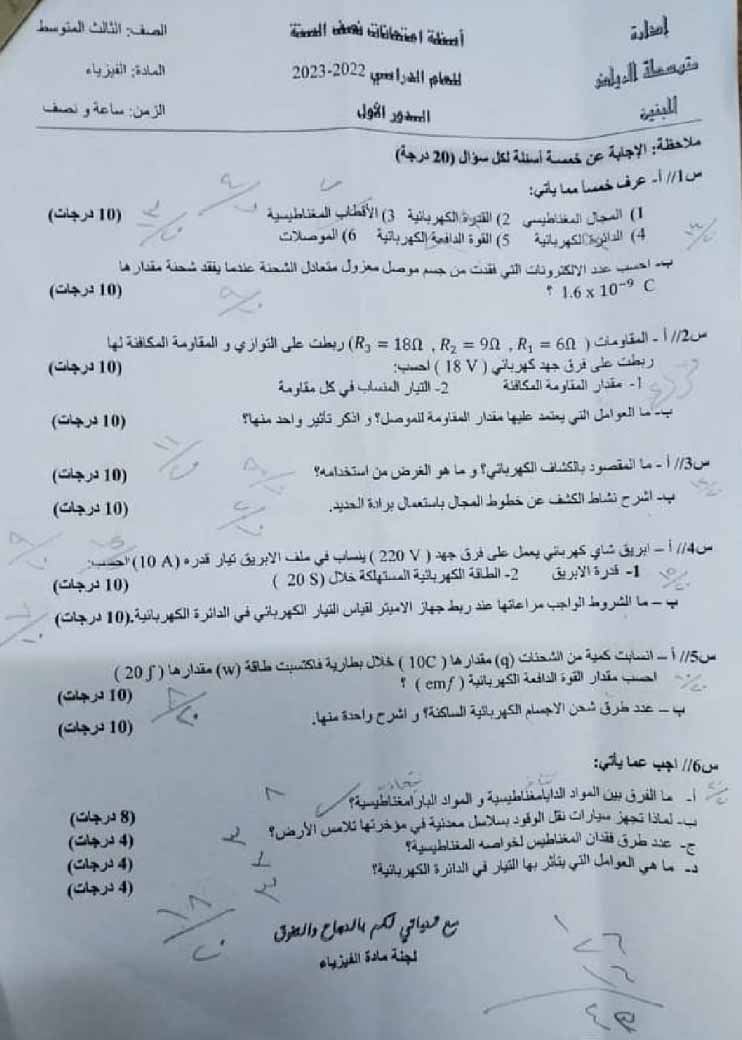 إدارة
متوسطة الرياض
للبنين
أسئلة امتحانات نصف السنة
للعام الدراسي 2022-2023
الدور الأول
الصف: الثالث المتوسط
المادة: الفيزياء
الزمن: ساعة و نصف
ملاحظة: الإجابة عن خمسة أسئلة لكل سؤال (20 درجة)
س1// أ- عرف خمساً مما يأتي:
1) المجال المغناطيسي 2) القدرة الكهربائية 3) الأقطاب المغناطيسية (10 درجات)
4) الدائرة الكهربائية 5) القوة الدافعة الكهربائية 6) الموصلات
ب- احسب عدد الالكترونات التي فقدت من جسم موصل معزول متعادل الشحنة عندما يفقد شحنة مقدارها
1.6 x 10⁻⁹ C ؟ (10 درجات)
س2// أ - المقاومات (R₃ = 18Ω , R₂ = 9Ω , R₁ = 6Ω) ربطت على التوازي و المقاومة المكافئة لها
ربطت على فرق جهد كهربائي ( 18 V ) احسب: (10 درجات)
1- مقدار المقاومة المكافئة 2- التيار المنساب في كل مقاومة
ب- ما العوامل التي يعتمد عليها مقدار المقاومة للموصل؟ و اذكر تأثير واحد منها؟ (10 درجات)
س3// أ - ما المقصود بالكشاف الكهربائي؟ و ما هو الغرض من استخدامه؟ (10 درجات)
ب- اشرح نشاط الكشف عن خطوط المجال باستعمال برادة الحديد. (10 درجات)
س4// أ – ابريق شاي كهربائي يعمل على فرق جهد ( 220 V ) ينساب في ملف الابريق تيار قدره (10 A) احسب:
1- قدرة الابريق 2- الطاقة الكهربائية المستهلكة خلال (20 S ) (10 درجات)
ب – ما الشروط الواجب مراعاتها عند ربط جهاز الاميتر لقياس التيار الكهربائي في الدائرة الكهربائية. (10 درجات)
س5// أ – انسابت كمية من الشحنات (q) مقدارها ( 10C ) خلال بطارية فاكتسبت طاقة (w) مقدارها ( 20 ʃ )
احسب مقدار القوة الدافعة الكهربائية ( emf ) ؟ (10 درجات)
ب – عدد طرق شحن الاجسام الكهربائية الساكنة؟ و اشرح واحدة منها. (10 درجات)
س6// اجب عما يأتي:
أ- ما الفرق بين المواد الدايامغناطيسية و المواد البارامغناطيسية؟ (8 درجات)
ب- لماذا تجهز سيارات نقل الوقود بسلاسل معدنية في مؤخرتها تلامس الأرض؟ (4 درجات)
ج- عدد طرق فقدان المغناطيس لخواصه المغناطيسية؟ (4 درجات)
د- ما هي العوامل التي يتأثر بها التيار في الدائرة الكهربائية؟ (4 درجات)
مع تمنياتي لكم بالنجاح والتفوق
لجنة مادة الفيزياء